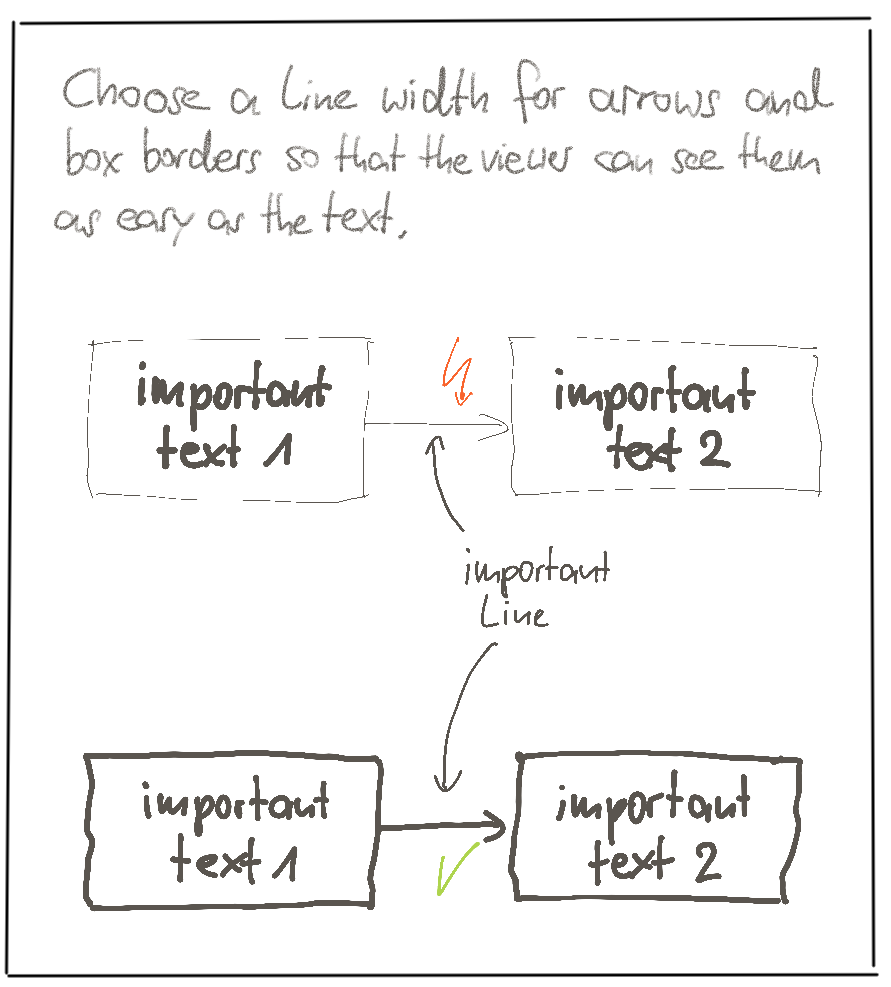 Choose a line width for arrows and
box borders so that the viewer can see them
as easy as the text.
important
text 1
important
text 2
important
Line
important
text 1
important
text 2